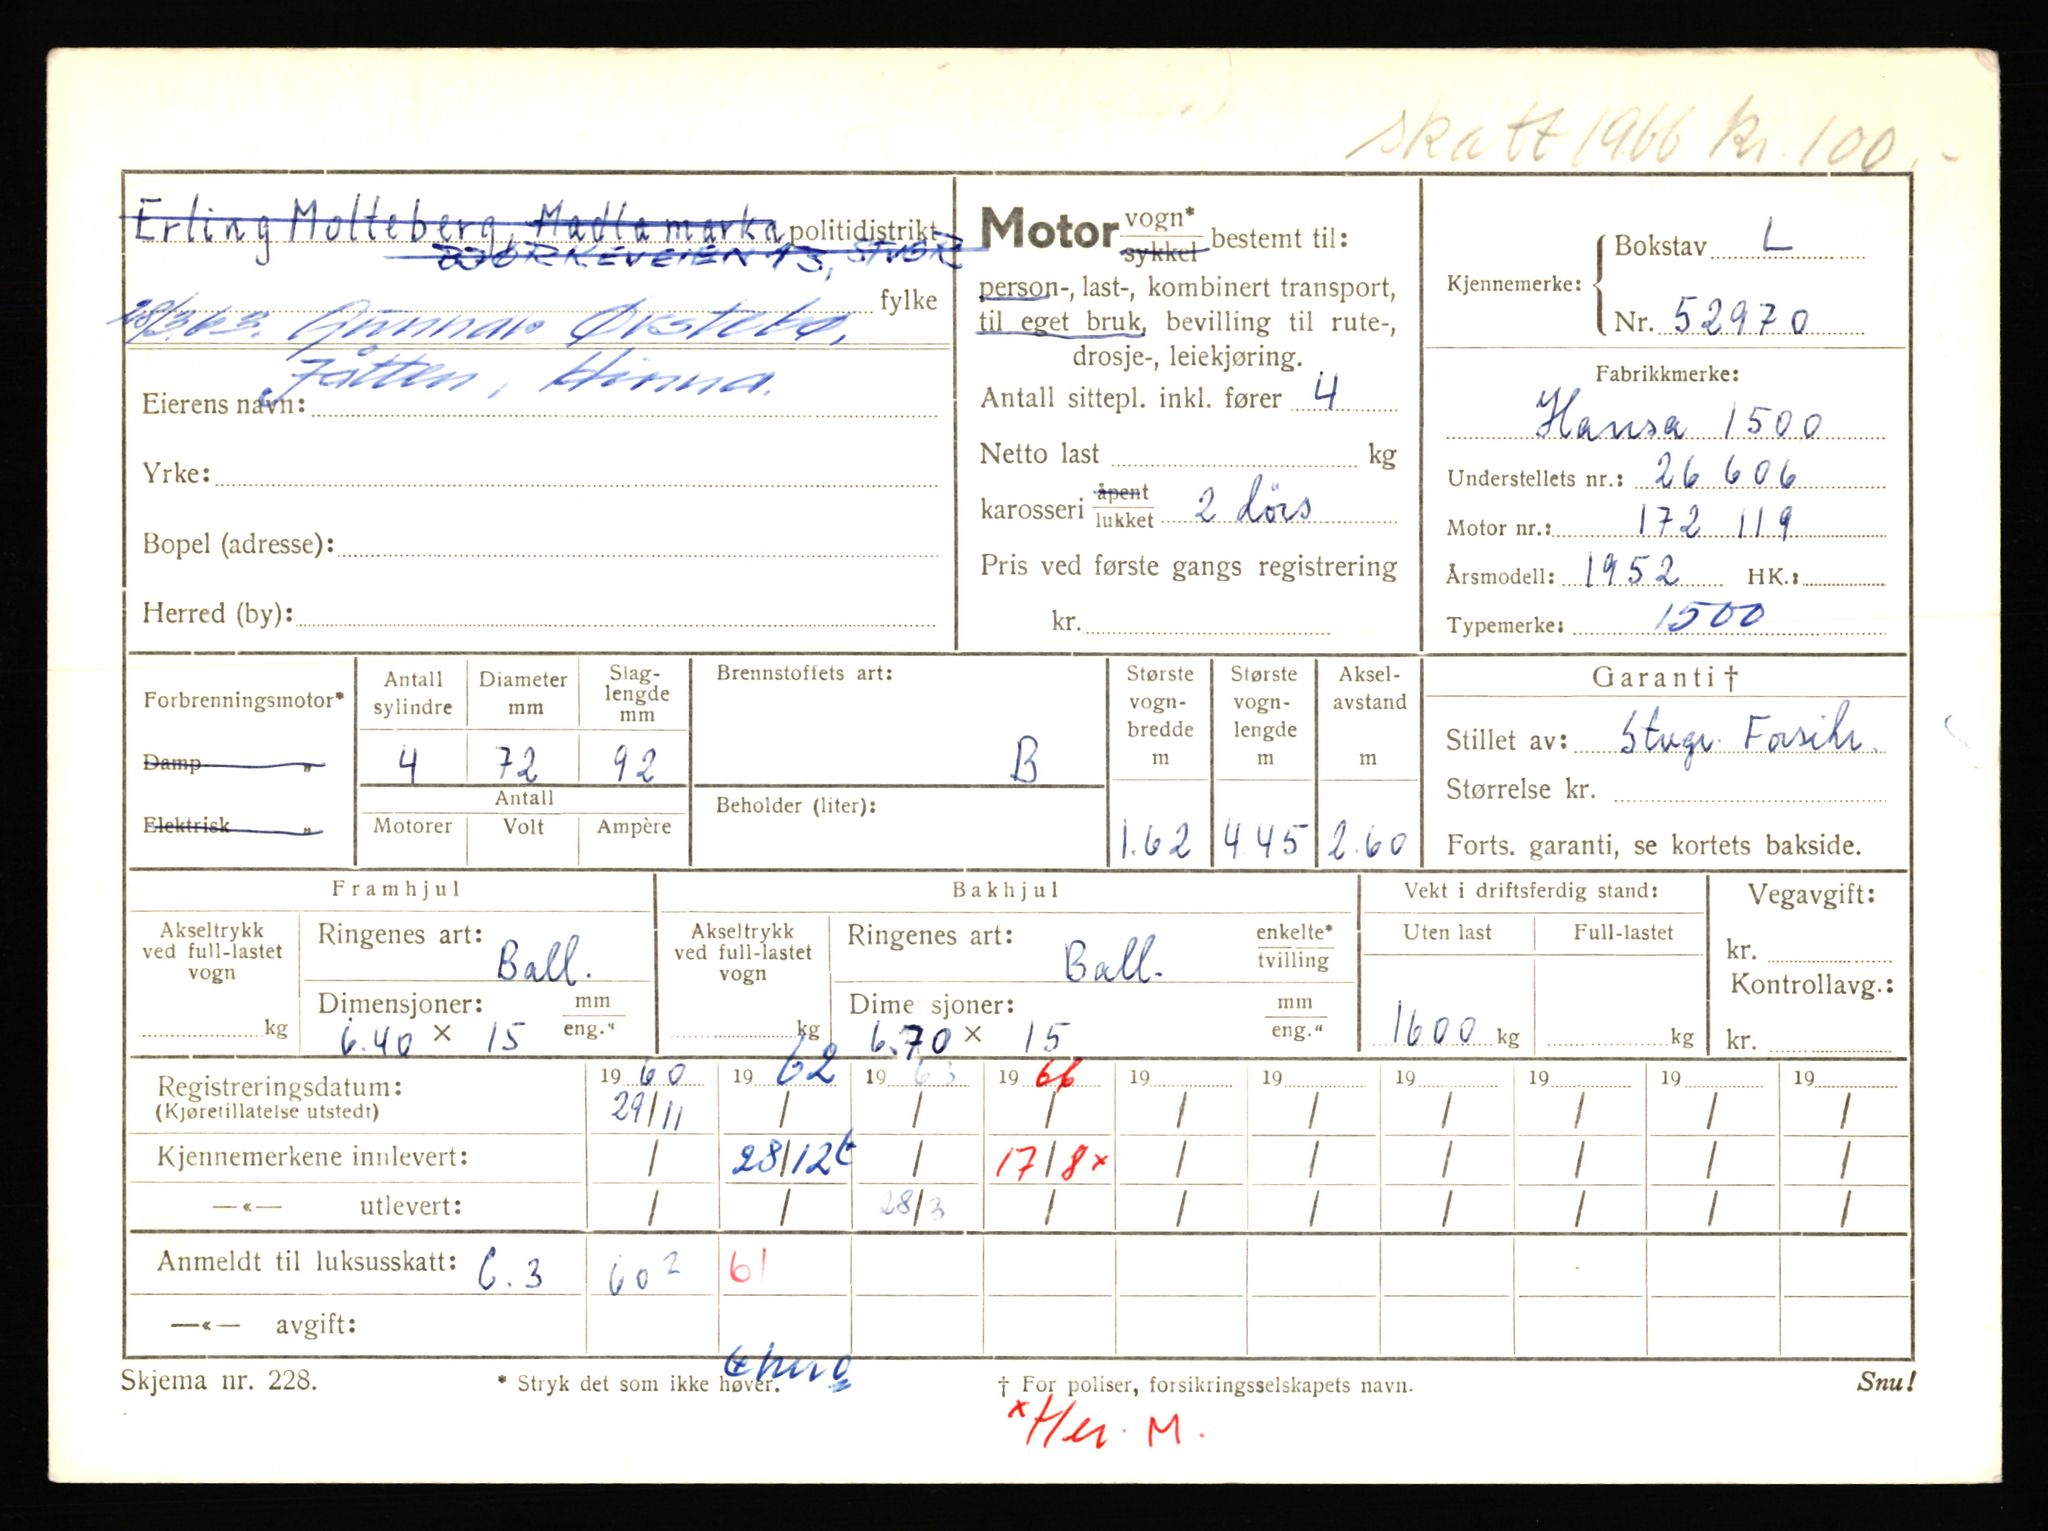 skatt 1966 kr. 100,-
Erling Molteberg, Madlamarka politidistrikt
BJØRKEVEIEN 13, STVGR
fylke
28/3.63. Gunnar Ørstebø,
Jåtten, Hinna.
Eierens navn:
Yrke:
Bopel (adresse):
Herred (by):
Motor vogn* sykkel bestemt til:
person-, last-, kombinert transport,
til eget bruk, bevilling til rute-,
drosje-, leiekjøring.
Antall sittepl. inkl. fører 4
Netto last kg
karosseri åpent lukket 2 dörs
Pris ved første gangs registrering
kr.
Kjennemerke: Bokstav L
Nr. 52970
Fabrikkmerke:
Hansa 1500
Understellets nr.: 26 606
Motor nr.: 172 119
Årsmodell: 1952 HK.:
Typemerke: 1500
Forbrenningsmotor*
Damp „
Elektrisk „
Antall sylindre Diameter mm Slag-lengde mm
4 72 92
Antall
Motorer Volt Ampère
Brennstoffets art:
B
Beholder (liter):
Største vogn-bredde m Største vogn-lengde m Aksel-avstand m
1.62 4.45 2.60
Garanti †
Stillet av: Stvgr. Forsikr.
Størrelse kr.
Forts. garanti, se kortets bakside.
Framhjul
Akseltrykk ved full-lastet vogn
kg
Ringenes art:
Ball.
Dimensjoner: mm eng."
6.40 × 15
Bakhjul
Akseltrykk ved full-lastet vogn
kg
Ringenes art: enkelte* tvilling
Ball.
Dime sjoner: mm eng."
6.70 × 15
Vekt i driftsferdig stand:
Uten last Full-lastet
1600 kg kg
Vegavgift:
kr.
Kontrollavg.:
kr.
Registreringsdatum: 19 60 19 62 19 63 19 66 19 19 19 19 19 19
(Kjøretillatelse utstedt) 29/11 / / / / / / / / /
Kjennemerkene innlevert: / 28/12 t / 17/8 x / / / / / /
—«— utlevert: / / 28/3 / / / / / / /
Anmeldt til luksusskatt: 6.3 60 2 61
—«— avgift:
Skjema nr. 228. * Stryk det som ikke høver. † For poliser, forsikringsselskapets navn. Snu!
x Her. M.